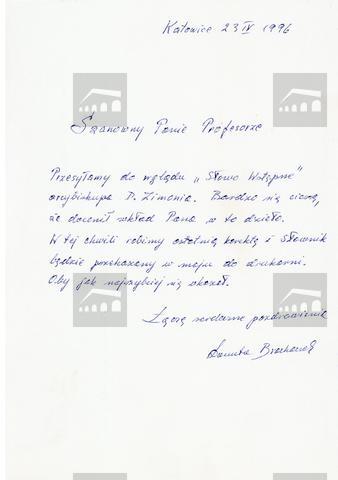 Katowice 23 IV 1996
Szanowny Panie Profesorze
Przesyłamy do wglądu „Słowo Wstępne"
arcybiskupa D. Zimonia. Bardzo się cieszę,
że docenił wkład Pana w to dzieło.
W tej chwili robimy ostatnią korektę i Słownik
będzie przekazany w maju do drukarni.
Oby jak najszybciej się ukazał.
Łączę serdeczne pozdrowienia
Danuta